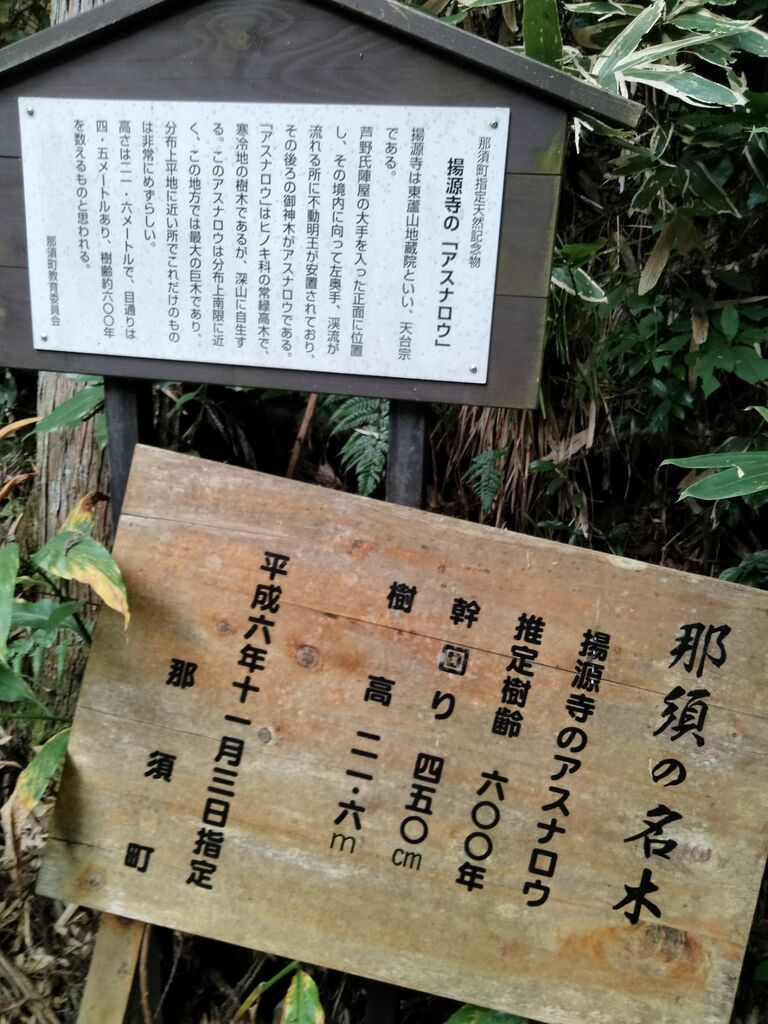 那須町指定天然記念物
揚源寺の「アスナロウ」
揚源寺は東蘆山地蔵院といい、天台宗
である。
芦野氏陣屋の大手を入った正面に位置
し、その境内に向って左奥手、渓流が
流れる所に不動明王が安置されており、
その後ろの御神木がアスナロウである。
「アスナロウ」はヒノキ科の常緑高木で、
寒冷地の樹木であるが、深山に自生す
る。このアスナロウは分布上南限に近
く、この地方では最大の巨木であり、
分布上平地に近い所でこれだけのもの
は非常にめずらしい。
高さは二一・六メートルで、目通りは
四・五メートルあり、樹齢約六〇〇年
を数えるものと思われる。
那須町教育委員会
那須の名木
揚源寺のアスナロウ
推定樹齢 六〇〇年
幹回り 四五〇cm
樹高 二一・六m
平成六年十一月三日指定
那須町